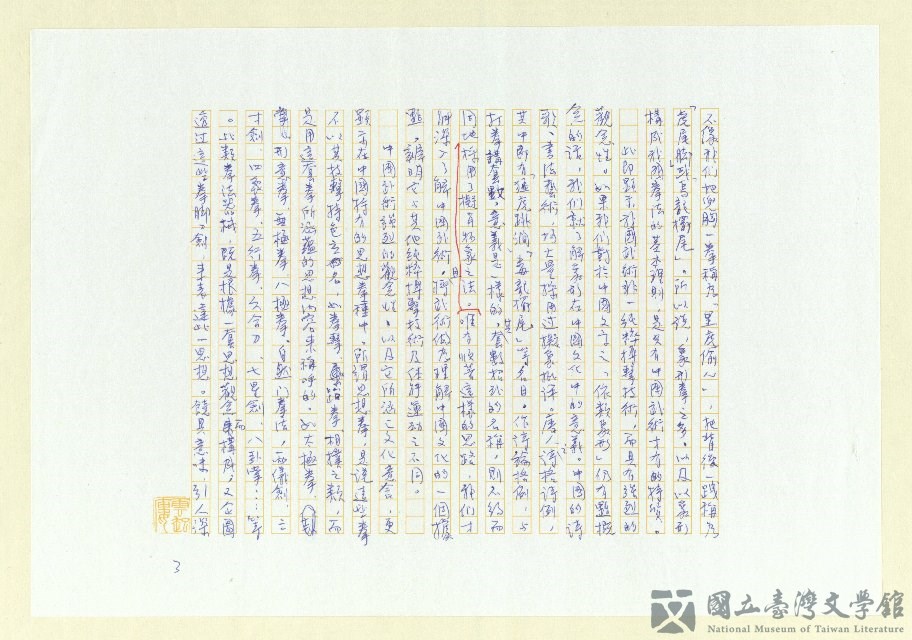 不像我們把兜胸一拳稱為「黑虎偷心」，把背後一踢稱為
「虎尾腳」或「烏龍擺尾」。所以說，象形拳之多，以及以象形
構成於拳法的基本理則，是只有中國武術才有的特質。
此即顯示於國武術非一純粹搏擊技術，而具有強烈的
觀念性。如果我們對於中國文字之「依類象形」仍有點概
念的話，我們就了解象形在中國文化中的意義。中國的詩
歌、書法藝術，均大量採用過擬象批評。唐人詩格詩例，
其中即有猛虎跳澗、毒龍擺尾」等名目。作詩論格例，與
打拳講套數，意義是一樣的，其套數招式的名稱，則不約而
同地採用了擬有物象之法。唯有順著這樣的思路，我們才
能深入了解中國武術，且將武術做為理解中國文化的一個據
點，辯明它與其他純粹搏擊技術及体能運動之不同。
中國武術強烈的觀念性，以及它所涵之文化意含，更
顯示在中國特有的思想拳種中。所謂思想拳，是說這些拳
不以其技擊特色立名，如拳擊、跆拳、相撲之類，而
是用這套拳所涵蘊的思想內容來稱呼的。如太極拳、
拳、形意拳、無極拳、八極拳、自然門拳法，兩儀劍、三
才劍、四象拳、五行拳、六合刀、七星劍、八卦掌……等
。此類拳法器械，既是根據一套思想觀念而構成，又企圖
透過這些拳腳刀劍，來表達此一思想。饒具意味，引人深
3
國立臺灣文學館
National Museum of Taiwan Literature